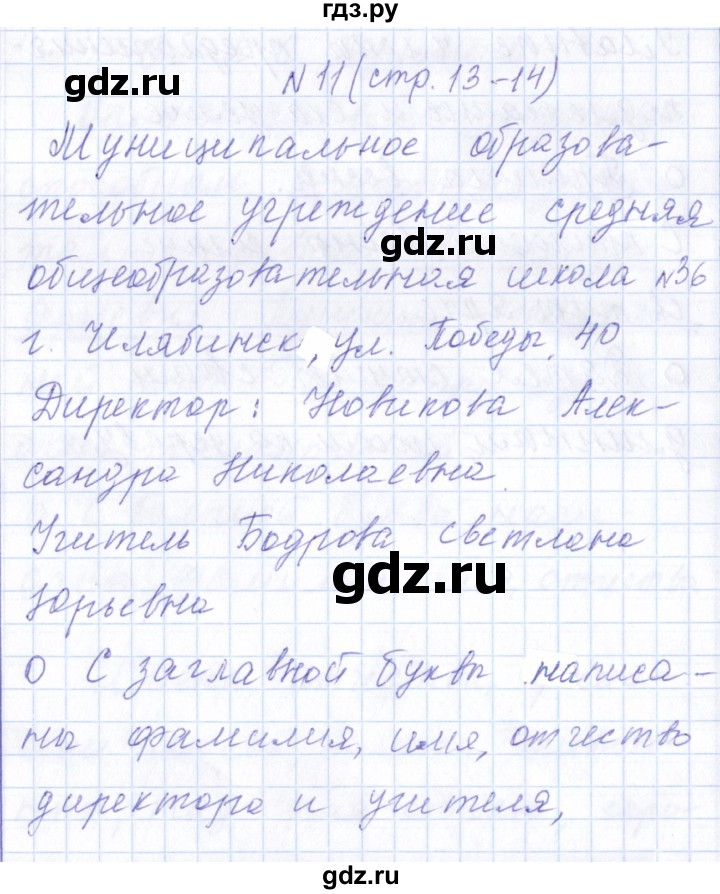 гдз.ру
gdz.ru
N 11 (стр. 13-14)
Муниципальное образова-
тельное учреждение средняя
gdz.ru
общеобразовательная школа №36
г. Челябинск, ул. Победы, 40
Директор: Новикова Алек-
сандра Николаевна.
Учитель Бодрова Светлана
gdz.ru
Юрьевна
О С заглавной буквы написа-
ны фамилия, имя, отчество
директора и учителя,
gdz.ru